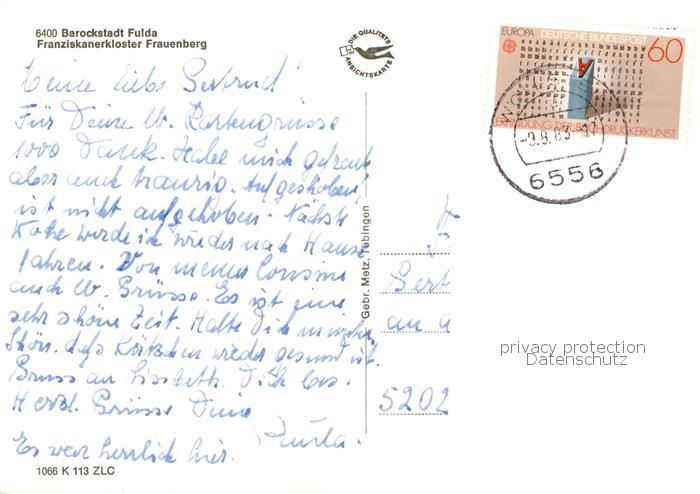 6400 Barockstadt Fulda
Franziskanerkloster Frauenberg
DIE QUALITÄTS
ANSICHTSKARTE
EUROPA DEUTSCHE BUNDESPOST 60
A
ERFINDUNG DER BUCHDRUCKERKUNST
-9.8.83
6556
Meine liebe Gertrud!
Für Deine lb. Kartengrüsse
1000 Dank. Habe mich gefreut
aber auch traurig. Aufgeschoben
ist nicht aufgehoben. Nächste
Woche werde ich wieder nach Hause
fahren. Von meiner Cousine
auch lb. Grüsse. Es ist eine
sehr schöne Zeit. Halte Dich
Schön, daß Kätzchen wieder gesund ist.
Gruss an Lisbeth. Dich bes.
Herzl. Grüsse Deine
Es war herrlich hier.
Gebr. Metz, Tübingen
Gert
an d
5202
privacy protection
Datenschutz
1066 K 113 ZLC